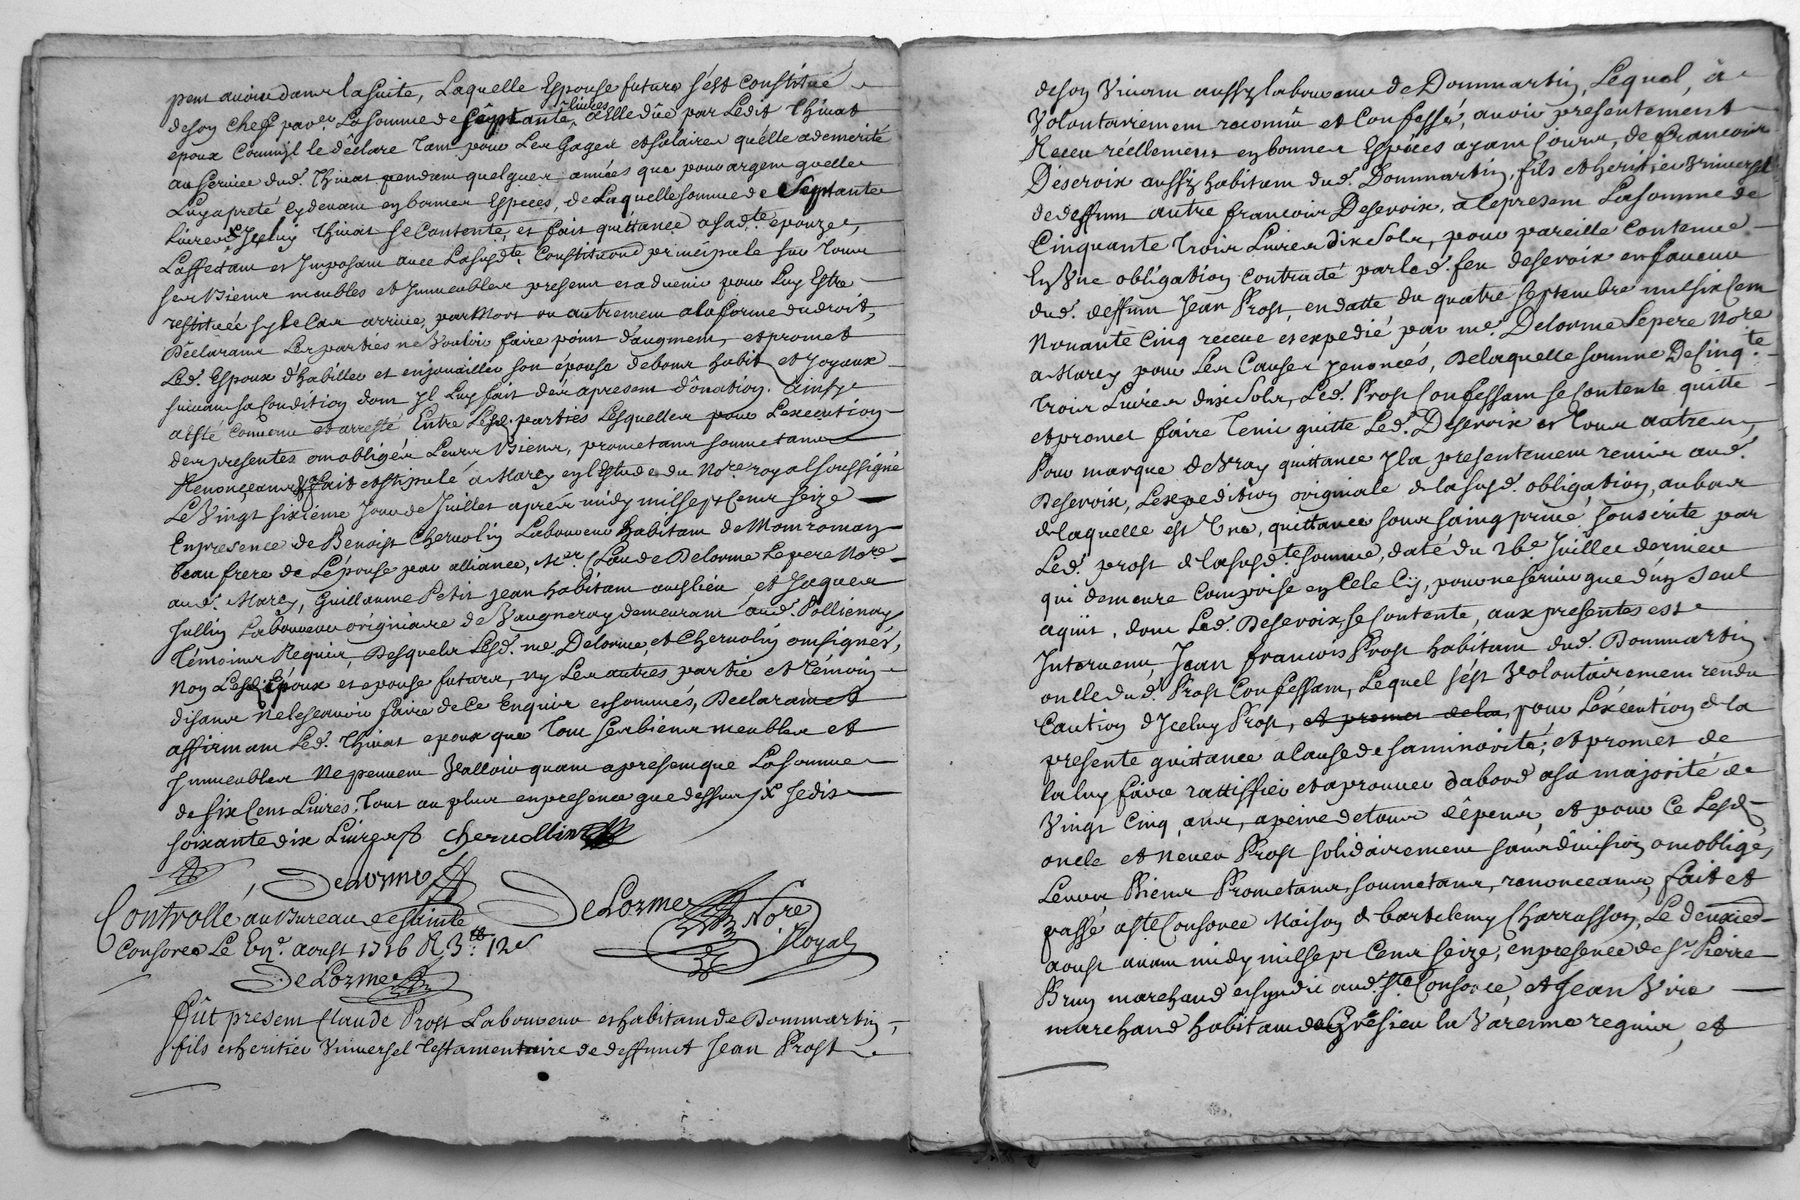 peut avoir dans la suite, Laquelle Espouse future s'est Constitué
de son chef par.er La somme de septante livres, a elle dûe par Ledit Thivat
epoux Comm'jl le declare Tant pour Les Gages et salaires qu'elle a demerité
au service dud. Thivat pendant quelques années que pour argent quelle
Luy a preté cy devant en bonnes Especes, de Laquelle somme de Septante
Livres Jceluy Thivat se Contente et fait quittance a sad.te epouze,
L'affectant et Jmposant avec La susd.te Constitution principale sur Tous
ses Biens meubles et Jmmeubles presens et advenir pour Luy Estre
restituée sy le Cas arrive, par Mort ou autrement a la forme du droit,
Déclarans Les parties ne Vouloir faire point d'augment, et promet
Led. Espoux d'habiller et enjouailler son épouse de bons habit et Joyaux
suivant sa Condition dont jl Luy fait dès apresent dônation. Ainsy
a esté Convenu et arresté Entre Lesd. parties Lesquelles pour L'execution
des presentes ont obligés Leurs Biens, prometans soumetans
Renonçeans & fait et stipulé a Marcy en L'Estude du No.re royal soussigné
Le Vingt sixiéme Jour de Juillet aprés midy mil sept Cens seize
En presence de Benoist Chervolin Laboureur habitant de Montromany
beau frere de L'épouse par alliance, M.er Claude Delorme Le pere No.re
aud. Marcy, Guillaume Petit jean habitant aud lieu, et Jaques
Jullin Laboureur originaire de Vaugneray demeurant aud. Pollienay
Témoins Requis, Desquels Lesd. me Delorme et Chervolin ont signés,
Non Lesd. Epoux et epouse futurs, ny Les autres partie et Témoin
disans Ne le scavoir faire de Ce Enquis et sommés, Declarant et
affirmant Led. Thivat epoux que Tous ses biens meubles et
Jmmeubles Ne peuvent Valloir quant apresent que La somme
de six Cens Livres. Tout au plus en presence que dessus X Jedis
soixante dix Livres Chervollin
Delorme
Controllé au Bureau de sainte
Consorce Le aoust 1716 R 3.tt 12 s
DeLorme No.re Royal
DeLorme
Fût present Claude Prost Laboureur et habitant de Dommartin,
fils et heritier Universel Testamentaire de deffunct Jean Prost
de son Vivant aussy laboureur de Dommartin, Lequel, a
Volontairement reconnû et Confessé, avoir presentement
Receu réellement en bonnes Especes ayant Cours, de francois
Deservoix aussy habitant dud. Dommartin, fils et heritier Universel
de deffunt autre francois Deservoix, a Ce present La somme de
Cinquante Trois Livres dix sols, pour pareille Contenue
En Vne obligation Contracté par led. feu deservoix en faveur
dud. deffunt Jean Prost, en datte du quatre septembre mil six Cent
Nonante Cinq receue et expedié par me. Delorme Le pere No.re
a Marcy pour Les Causes y enoncés, De laquelle somme De Cinq.te
Trois Livres dix sols, Led. Prost Confessant se Contente quitte
et promet faire Tenir quitte Led. Deservoix et Tous autres,
Pour marque de Vray quittance jl a presentement remis aud.
Deservoix, L'expedition originale de la susd. obligation, au bas
de laquelle est Vne, quittance sous saing privé souscrite par
Led. prost de la susd.te somme, daté du 26e Juillet dernier
qui demeure Comprise en Cele Cy, pour ne servir que d'un seul
aquit, dont Led. Deservoix se Contente, aux presentes est
Intervenu Jean francois Prost habitant dud. Dommartin
oncle dud. Prost Confessant, Lequel s'est Volontairement rendu
Caution d'Jceluy Prost, et promet de la, pour L'exécution de la
presente quittance a Cause de sa minorité; et promet de
la luy faire rattiffier et aprouver d'abord a sa majorité de
Vingt Cinq ans, a peine de tous dépens, et pour Ce Lesd.
oncle et Neveu Prost solidairement sans division ont obligé,
Leurs Biens Prometans, soumetans, renonceans, fait et
passé a S.te Consorce Maison de bartelemy Charrasson, Le deuxie
aoust avant midy mil sept Cens seize, en presence de S.r Pierre
Brun marchand et syndic aud. S.te Consorce, et Jean Vire
marchand habitant de Grésieu la Varenne requis, et